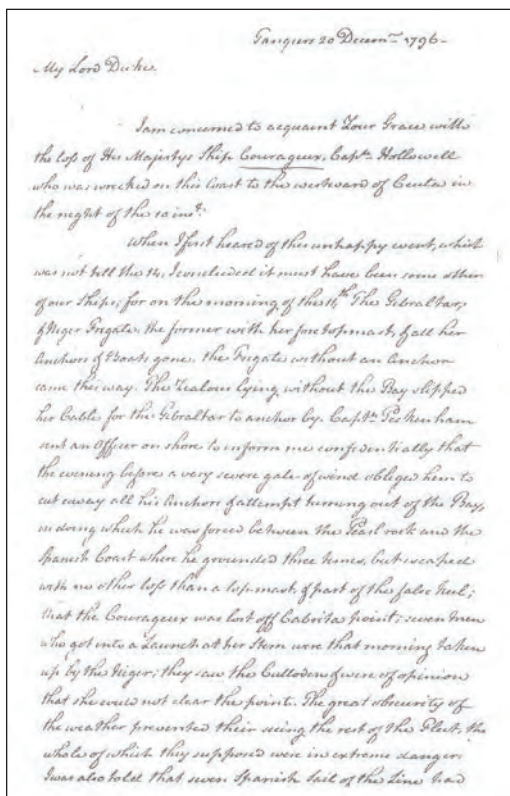 Tangiers 20 Decem.^r 1796-
My Lord Duke
I am concerned to acquaint Your Grace with
the loss of His Majestys Ship Courageux, Capt.ⁿ Hollowell
who was wrecked on this Coast to the westward of Ceuta in
the night of the 10 ins.ᵗ
When I first heard of this unhappy event, which
was not till the 14, I concluded it must have been some other
of our Ships, for on the morning of the 11.ᵗʰ The Gibraltar,
& Niger Fregate, the former with her fore topmast, & all her
Anchors & Boats gone, the Fregate without an Anchor
came this way. The Zealous lying without the Bay slipped
her Cable for the Gibraltar to anchor by. Capt.ⁿ Peckenham
sent an Officer on shore to inform me confidentially that
the evening before a very severe gale of wind obliged him to
cut away all his Anchors & attempt turning out of the Bay,
in doing which he was forced between the Pearl rock and the
Spanish Coast where he grounded three times, but escaped
with no other loss than a topmast, & part of the false keel;
that the Courageux was lost off Cabrita point; seven men
who got into a Launch at her Stern were that morning taken
up by the Niger; they saw the Culloden & were of opinion
that she would not clear the point. The great obscurity of
the weather prevented their seeing the rest of the Fleet, the
whole of which they supposed were in extreme danger.
I was also told that seven Spanish Sail of the Line had